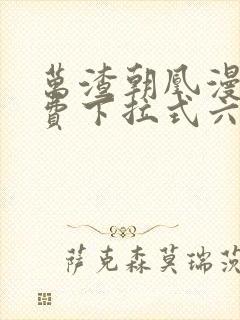 萬渣朝凰漫
費下拉式六
萨克森莫瑞茨